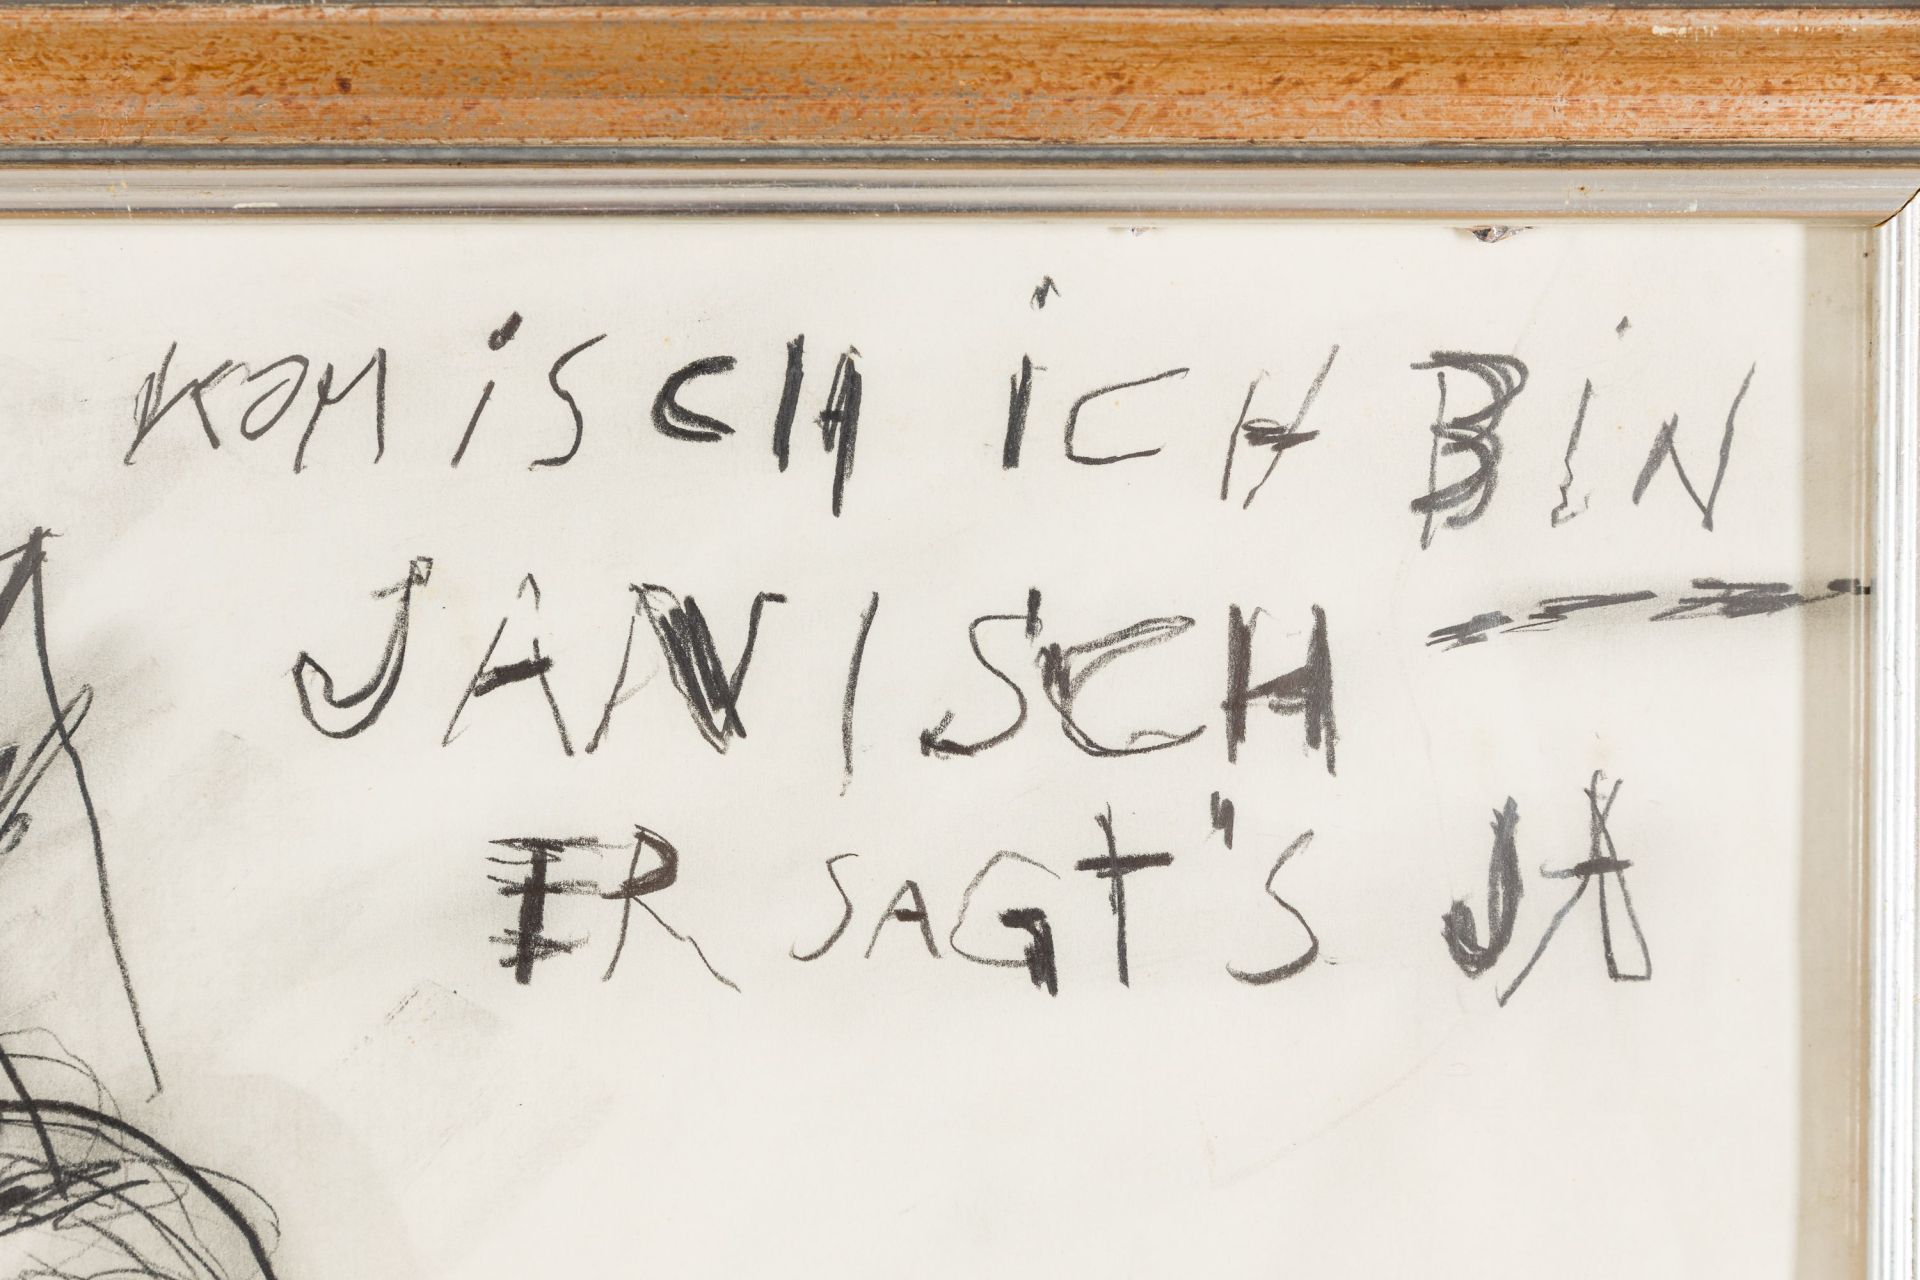 KOMiSCH iCH BiN
JANISCH
ER SAGT'S JA